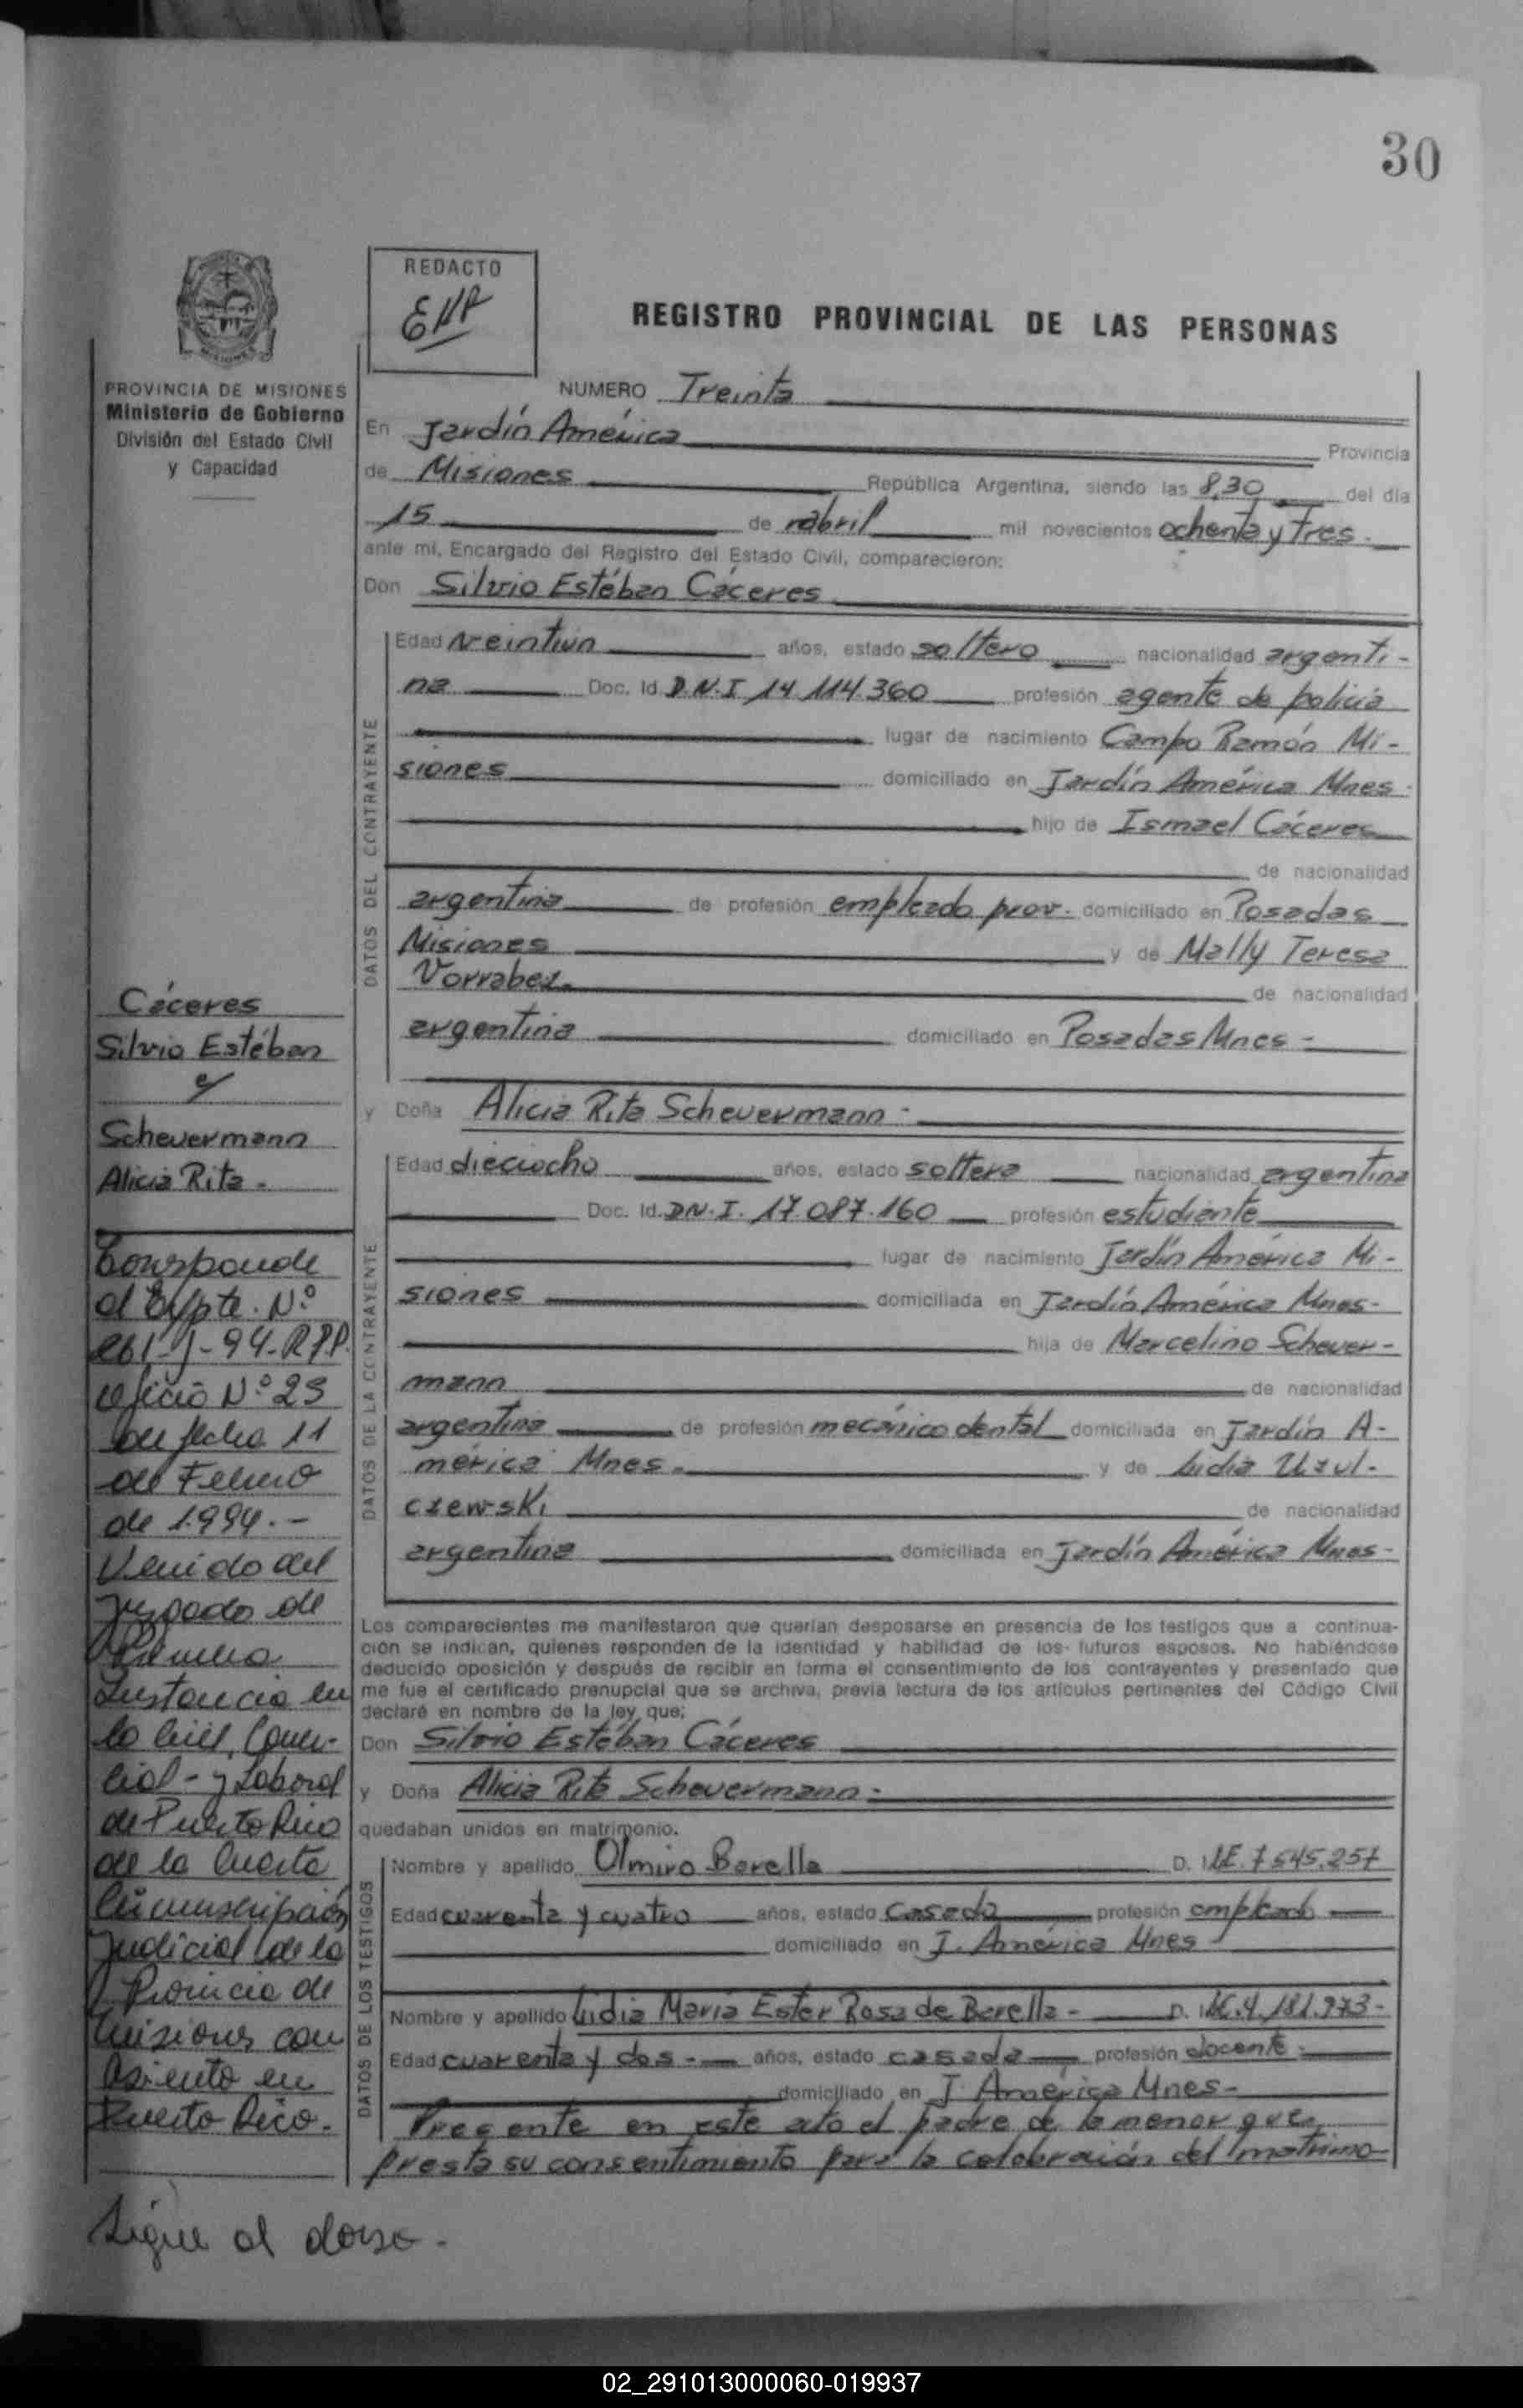 30
REDACTO
REGISTRO PROVINCIAL DE LAS PERSONAS
PROVINCIA DE MISIONES
Ministerio de Gobierno
División del Estado Civil
y Capacidad
NUMERO Treinta
En Jardín América Provincia
de Misiones República Argentina, siendo las 8,30 del día
15 de abril mil novecientos ochenta y Tres.
ante mí, Encargado del Registro del Estado Civil, comparecieron:
Don Silvio Estéban Cáceres
DATOS DEL CONTRAYENTE
Edad veintiun años, estado soltero nacionalidad argenti-
na Doc. Id. D.N.I 14.114.360 profesión agente de policía
lugar de nacimiento Campo Ramón Mi-
siones domiciliado en Jardín América Mnes.
hijo de Ismael Cáceres
de nacionalidad
argentina de profesión empleado prov. domiciliado en Posadas
Misiones y de Mally Teresa
Vorrabez. de nacionalidad
argentina domiciliado en Posadas Mnes -
y Doña Alicia Rita Scheuermann -
DATOS DE LA CONTRAYENTE
Edad dieciocho años, estado soltera nacionalidad argentina
Doc. Id. D.N.I. 17.087.160 profesión estudiante
lugar de nacimiento Jardín América Mi-
siones domiciliada en Jardín América Mnes-
hija de Marcelino Scheuer-
mann de nacionalidad
argentina de profesión mecánico dental domiciliada en Jardín A-
mérica Mnes. y de Lidia Uzul-
czewski de nacionalidad
argentina domiciliada en Jardín América Mnes-
Los comparecientes me manifestaron que querían desposarse en presencia de los testigos que a continua-
ción se indican, quienes responden de la identidad y habilidad de los futuros esposos. No habiéndose
deducido oposición y después de recibir en forma el consentimiento de los contrayentes y presentado que
me fue el certificado prenupcial que se archiva, previa lectura de los artículos pertinentes del Código Civil
declaré en nombre de la ley, que:
Don Silvio Estéban Cáceres
y Doña Alicia Rita Scheuermann-
quedaban unidos en matrimonio.
DATOS DE LOS TESTIGOS
Nombre y apellido Olmiro Barella D. I LE. 7.545.257
Edad cuarenta y cuatro años, estado casado profesión empleado
domiciliado en J. América Mnes
DATOS DE LOS TESTIGOS
Nombre y apellido Lidia María Ester Rosa de Barella - D. I LC. 4.181.973-
Edad cuarenta y dos - años, estado casada profesión docente -
domiciliado en J. América Mnes-
Presente en este ato el padre de la menor que
presta su consentimiento para la celebración del matrimo-
Cáceres
Silvio Estéban
y
Scheuermann
Alicia Rita -
Corresponde
al Expte. Nº
261-J-94-RPP.
oficio Nº 25
de fecha 11
de Febrero
de 1.994.-
Venido del
Juzgado de
Primera
Instancia en
lo Civil, Comer-
cial - y Laboral
de Puerto Rico
de la Cuarta
Circunscripción
Judicial de la
Provincia de
Misiones con
Asiento en
Puerto Rico.
Sigue al dorso -
02_291013000060-019937